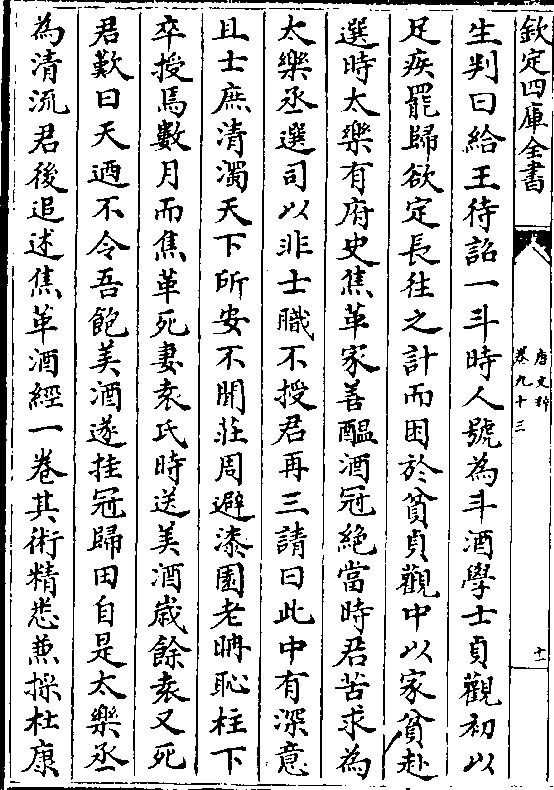 欽定四庫全書
唐文粹
卷九十三
十一
生判曰給王待詔一斗時人號為斗酒學士貞觀初以
足疾罷歸欲定長往之計而困於貧貞觀中以家貧赴
選時太樂有府史焦革家善醞酒冠絶當時君苦求為
太樂丞選司以非士職不授君再三請曰此中有深意
且士庶清濁天下所安不聞莊周避漆園老聃恥柱下
卒授焉數月而焦革死妻袁氏時送美酒歲餘袁又死
君歎曰天迺不令吾飽美酒遂挂冠歸田自是太樂丞
為清流君後追述焦革酒經一卷其術精悉兼採杜康